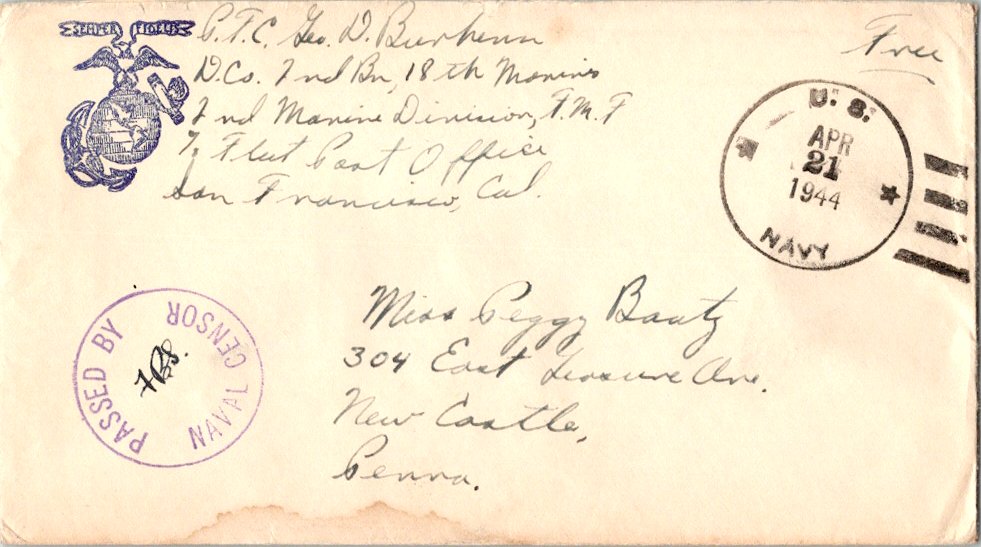 SEMPER FIDELIS
P.F.C. Geo. D. Burhenn
D. Co. 2nd Bn, 18th Marines
2nd Marine Division, F.M.F
℅ Fleet Post Office
San Francisco, Cal.
Free
U. S.
APR
21
1944
NAVY
PASSED BY
NAVAL CENSOR
Miss Peggy Bautz
304 East Leasure Ave.
New Castle,
Penna.